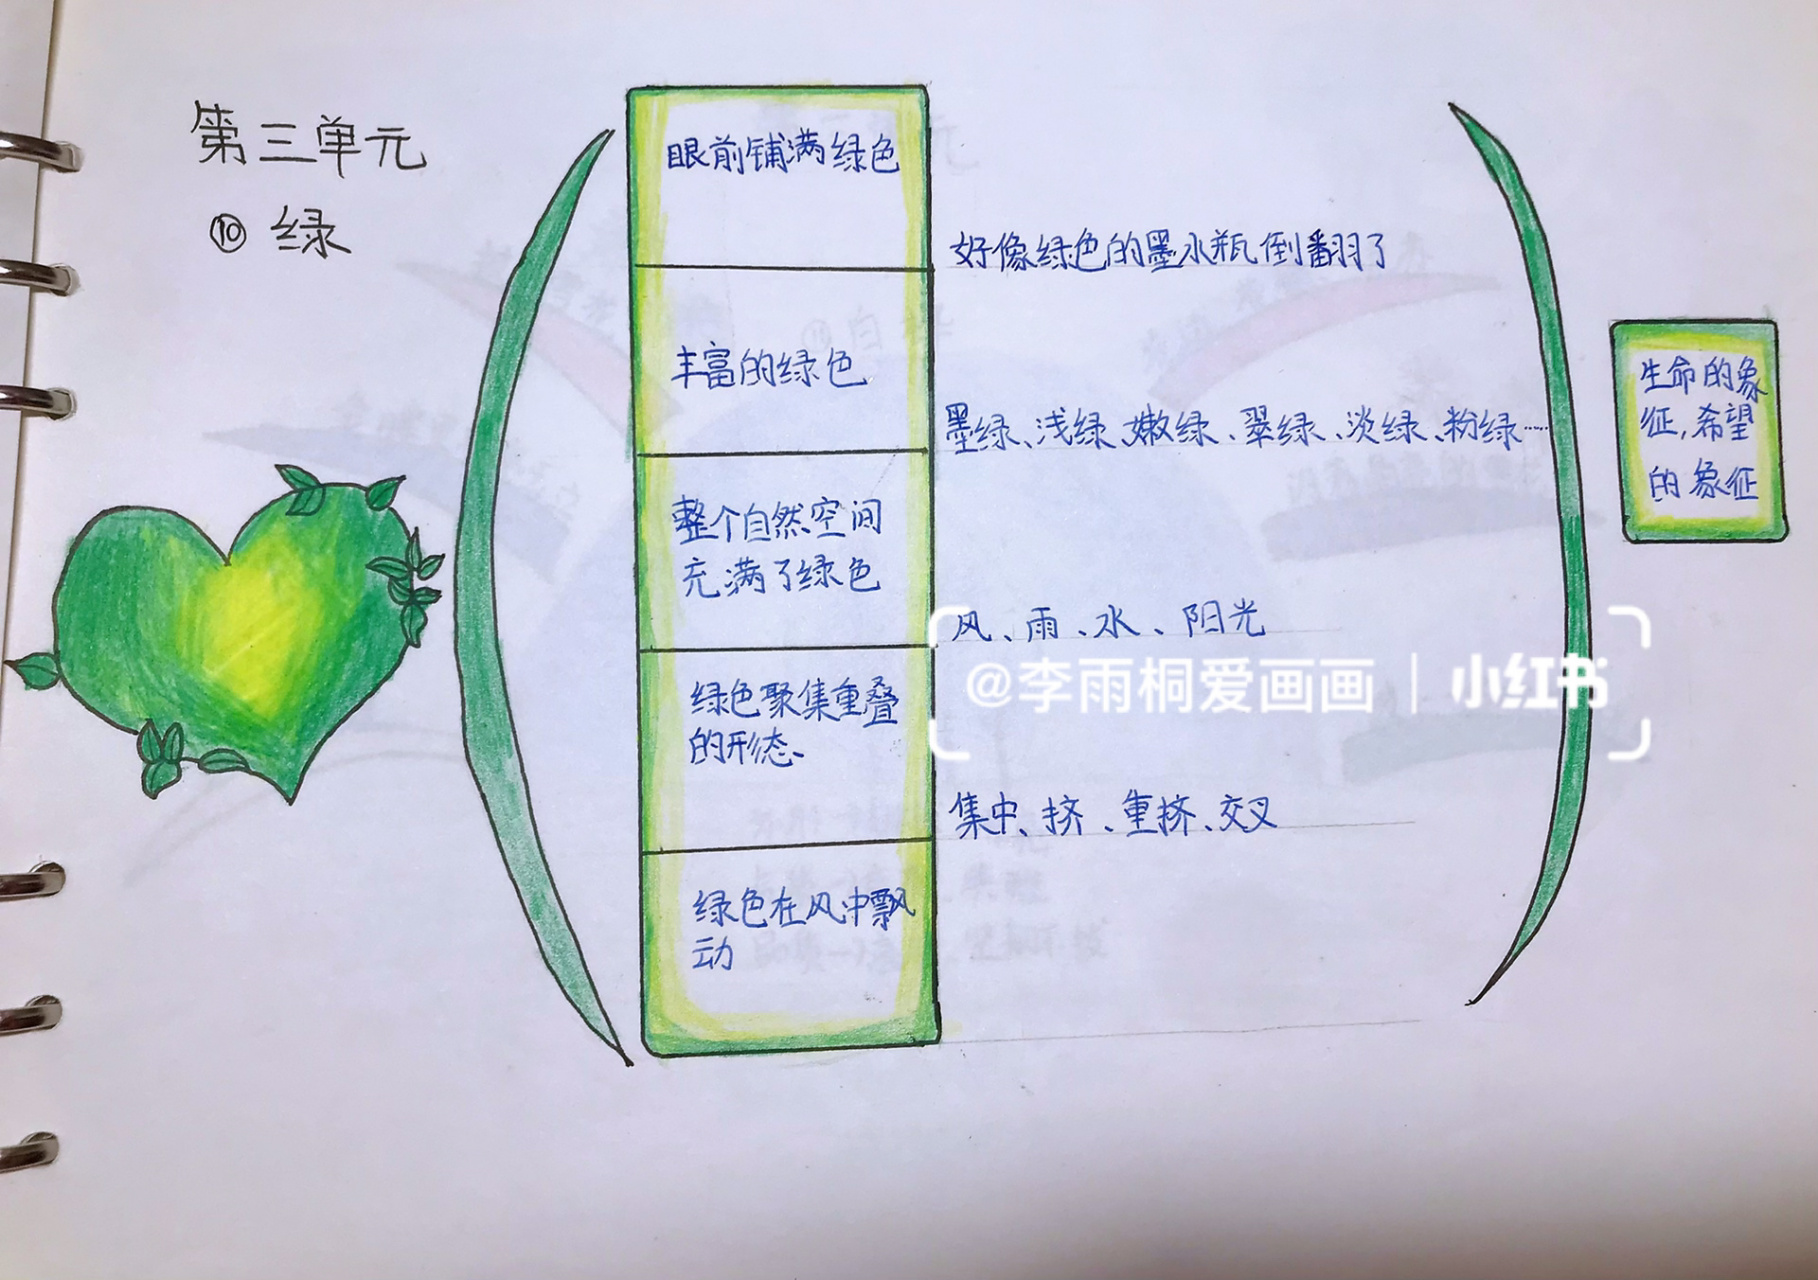 第三单元
⑩ 绿
眼前铺满绿色
好像绿色的墨水瓶倒翻了
丰富的绿色
墨绿、浅绿、嫩绿、翠绿、淡绿、粉绿……
整个自然空间
充满了绿色
风、雨、水、阳光
绿色聚集重叠
的形态、
集中、挤、重挤、交叉
绿色在风中飘
动
生命的象
征,希望
的象征
@李雨桐爱画画 | 小红书